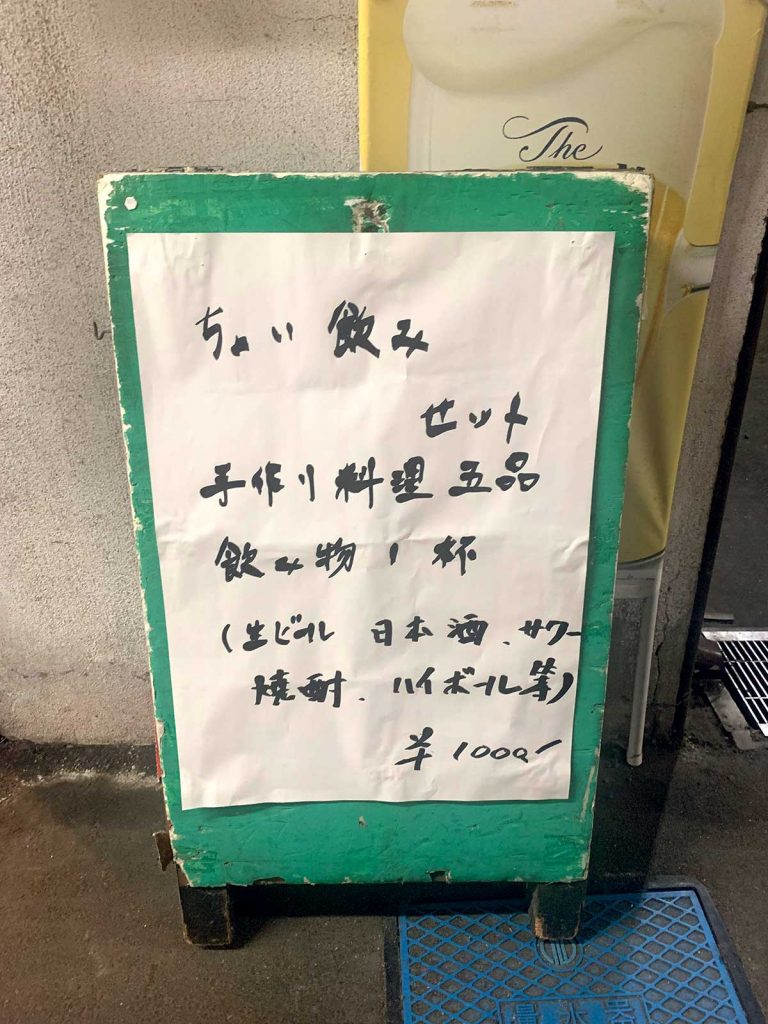 The
ちょい飲み
セット
手作り料理 五品
飲み物1杯
(生ビール 日本酒、サワー
焼酎、ハイボール等)
¥1000-